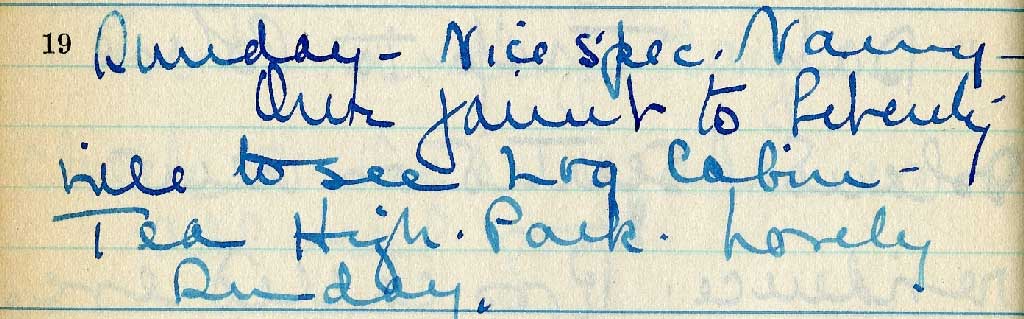 19 Sunday - Nice spec. Nancy -
Our jaunt to Liberty-
ville to see Log Cabin -
Tea High. Park. Lovely
Sunday.